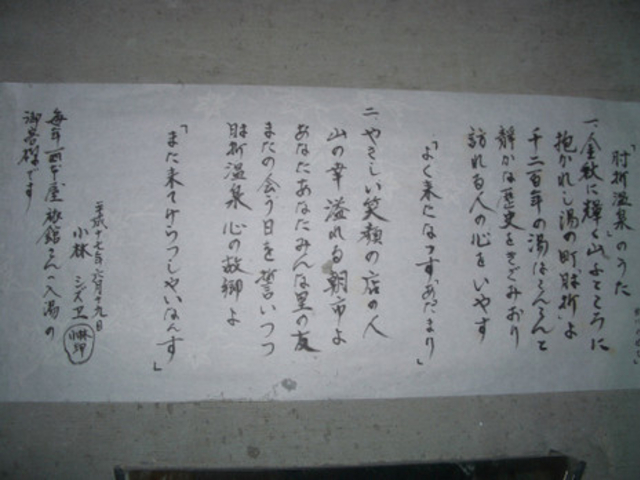 「肘折温泉のうた
一、金秋に輝く山ふところに
抱かれし湯の町、肘折よ
千二百年の湯はこんこんと
静かな歴史をきざみおり
訪れる人の心をいやす
「よく来たなっす
二 やさしい笑顔の店の人
山の幸溢れる朝市よ
あなたあなたみんな里の友
またの会う日を誓いつつ
肘折温泉心の故郷よ
「また来てけらっしゃいなんす」
平成十七年六月十九日
小林 シズヱ
毎年 屋旅館さんへ入湯の
御客様です